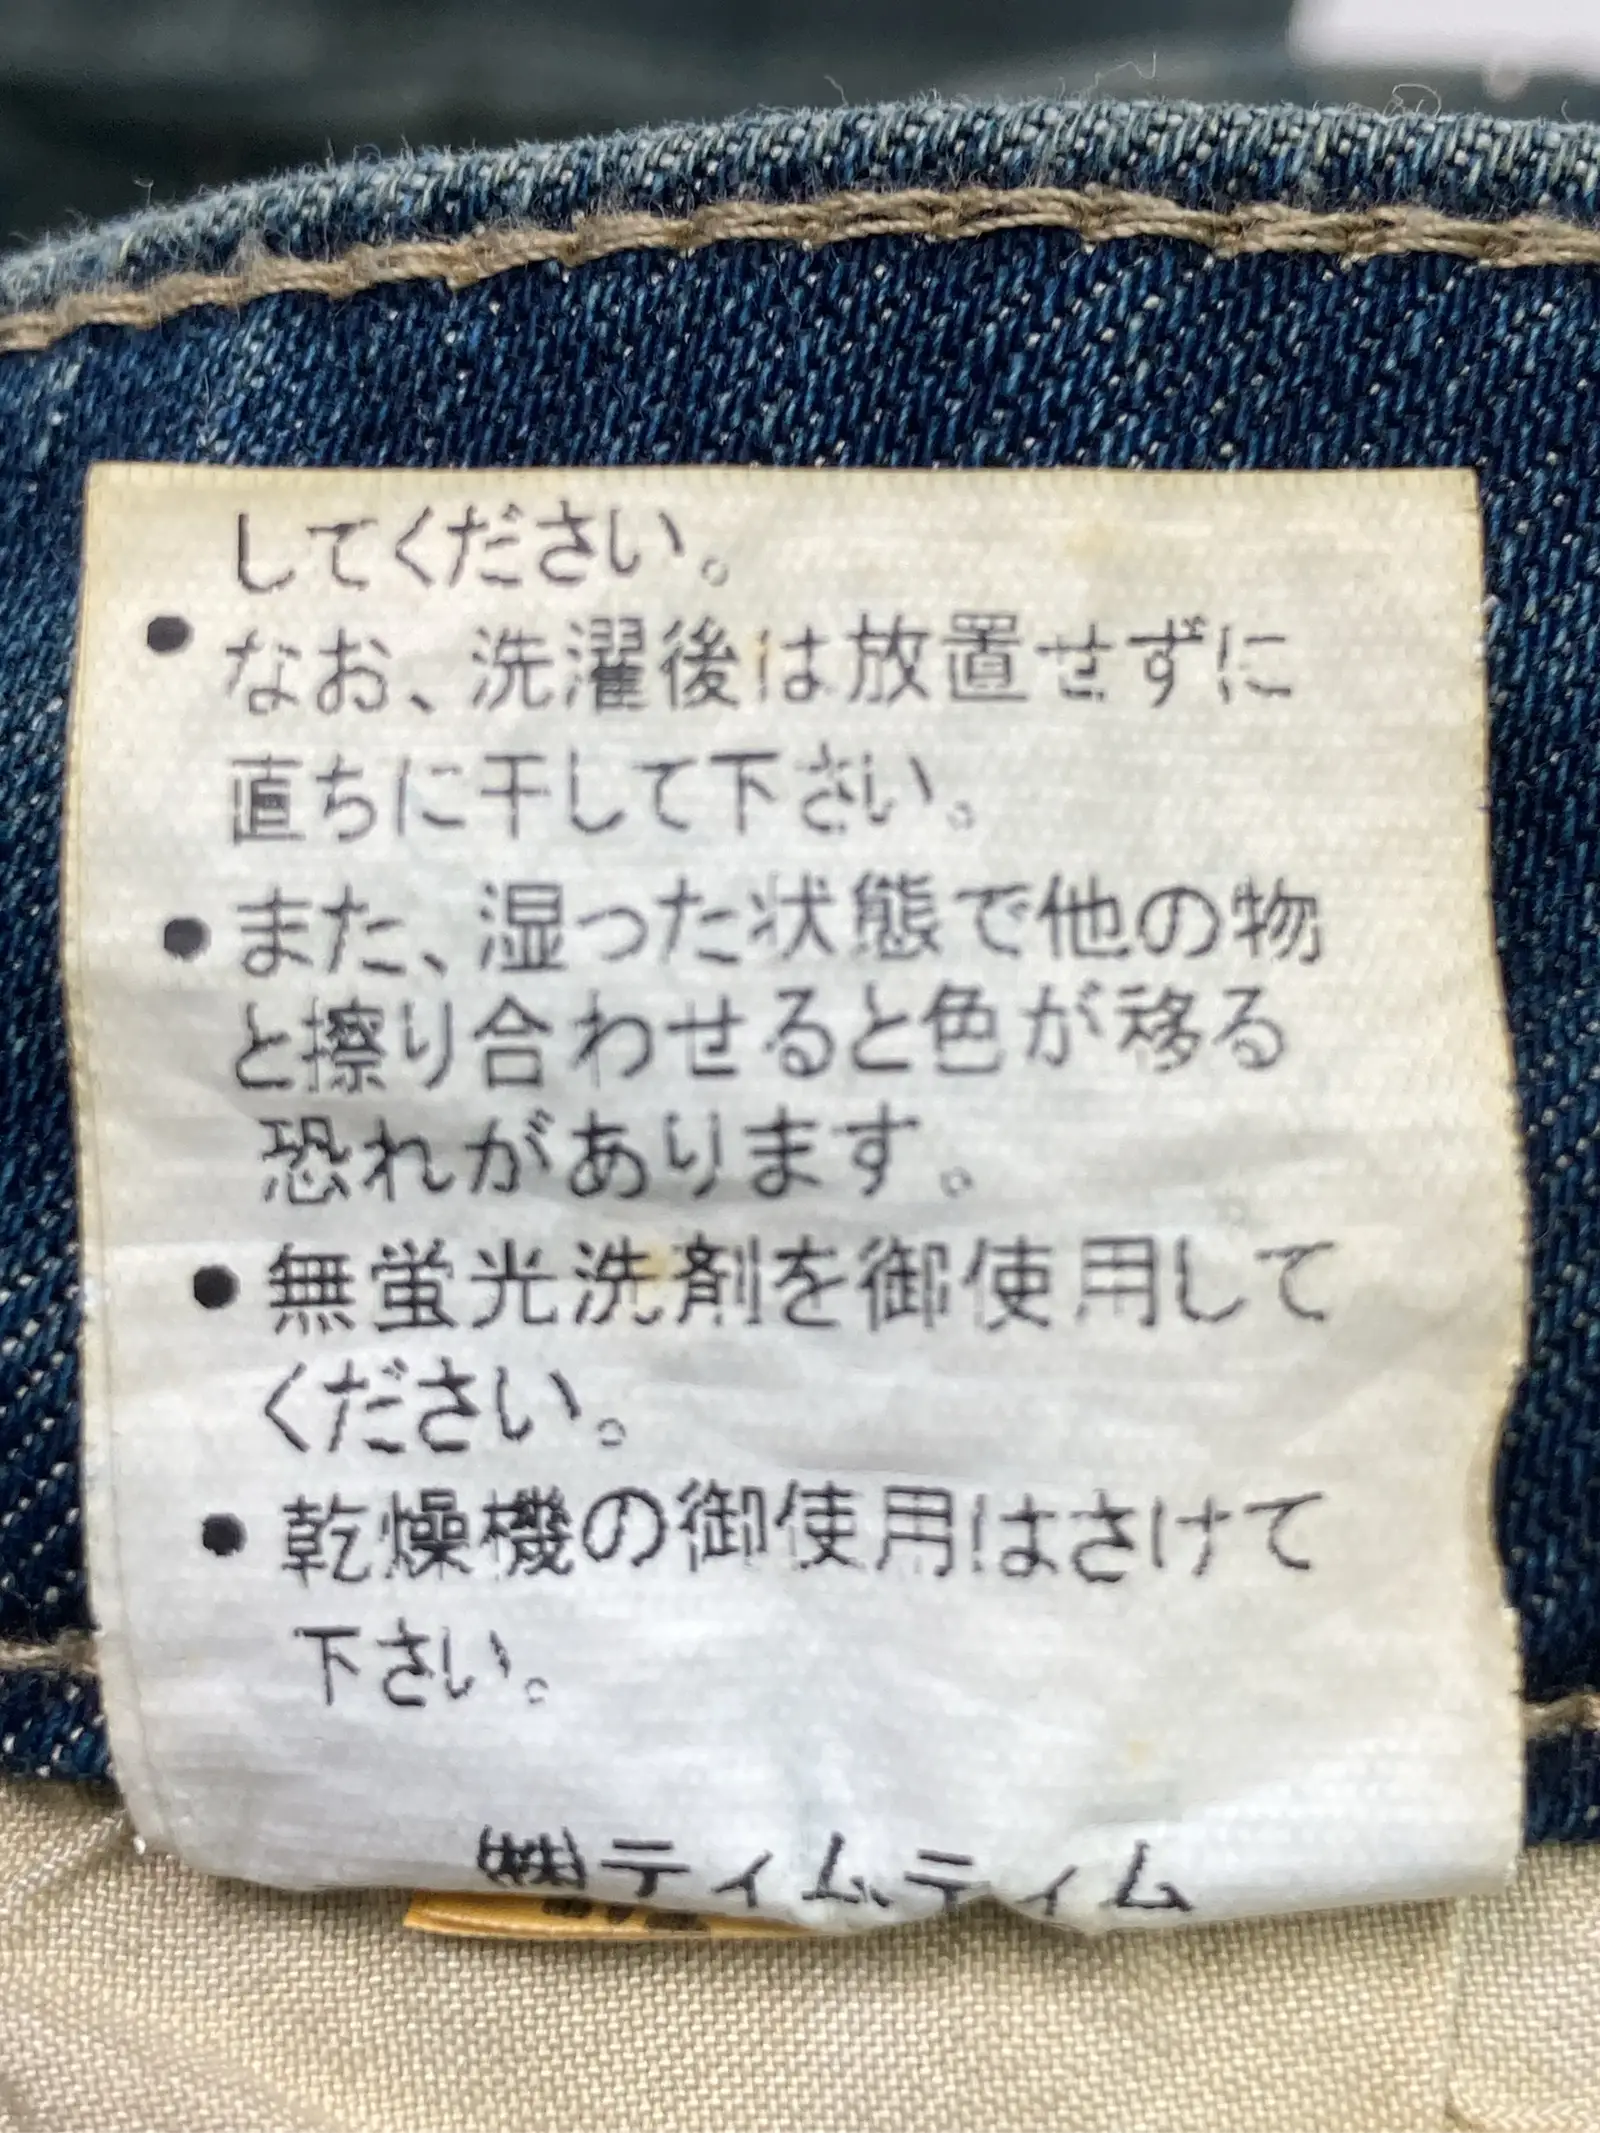 してください。
●なお、洗濯後は放置せずに
直ちに干して下さい。
●また、湿った状態で他の物
と擦り合わせると色が移る
恐れがあります。
●無蛍光洗剤を御使用して
ください。
●乾燥機の御使用はさけて
下さい。
㈱ティムティム